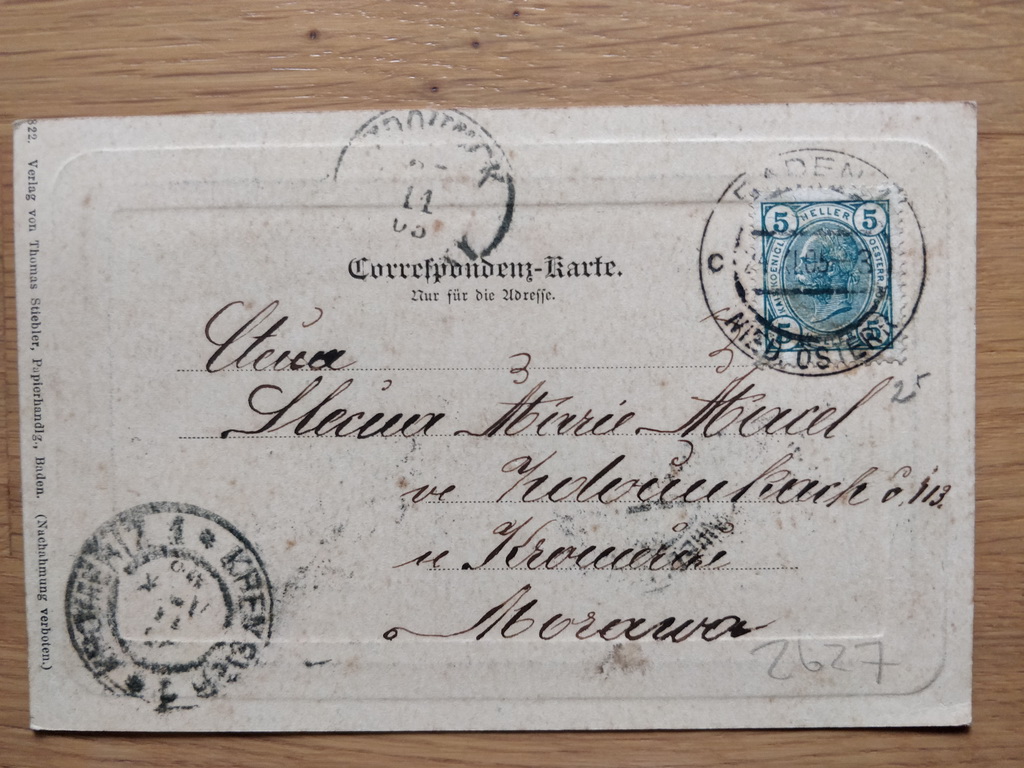 822. Verlag von Thomas Stiebler, Papierhandlg., Baden. (Nachahmung verboten.)
11
05
Correspondenz-Karte.
Nur für die Adresse.
BADEN
C
NIED. OSTERR.
5 HELLER 5
KAIS. KOENIGL. OESTERR.
5 5
25
Ctěná
Slečna Marie Macel
ve Zdounkách č. 113.
u Kroměříže
Morawa
2627
KREMSIER 1 * KROMĚŘÍŽ 1 *